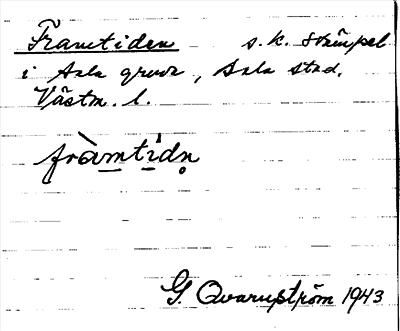 Framtiden s.k. stämpel
i Sala gruva, Sala stad.
Västm. l.
fràmtídn̥
G. Qvarnström 1943